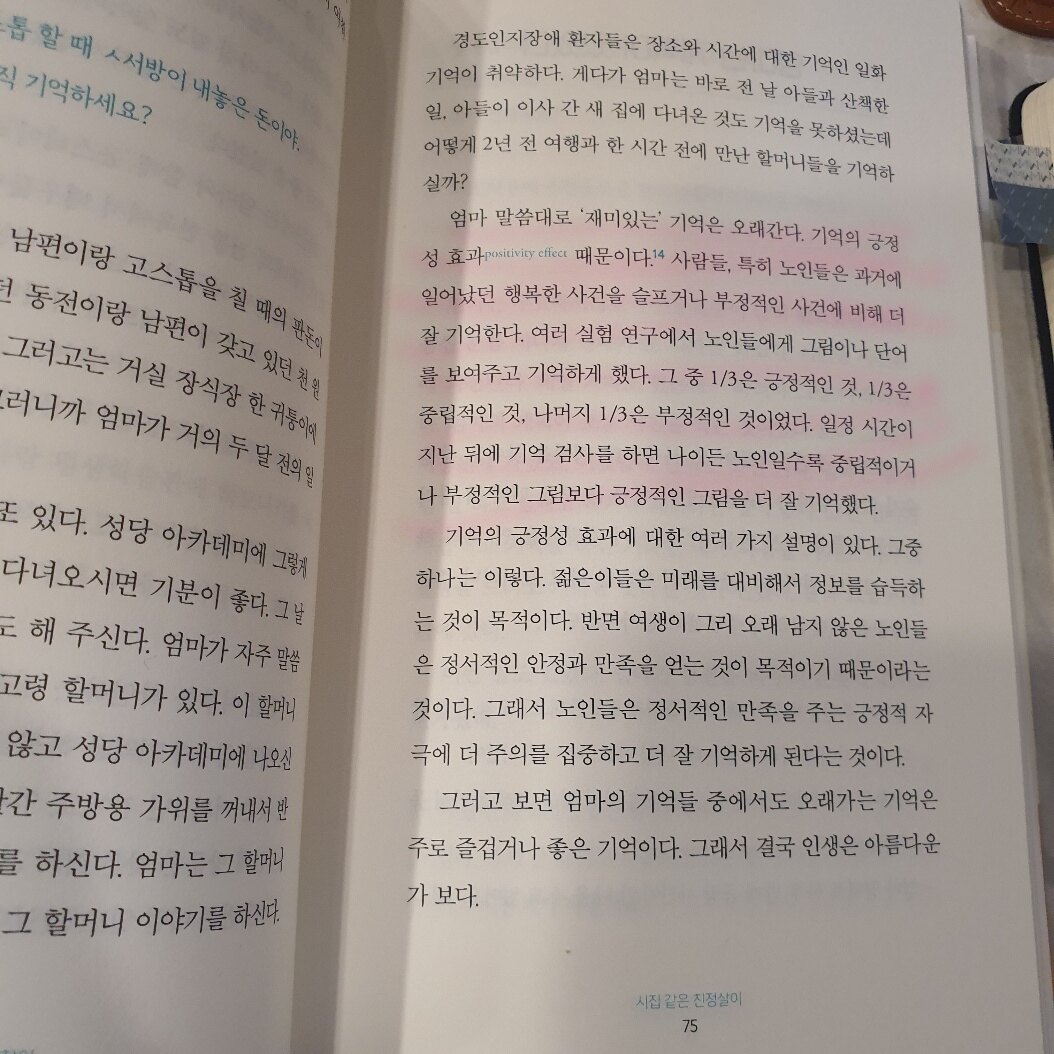 스톱 할 때 ㅅ서방이 내놓은 돈이야.
직 기억하세요?
남편이랑 고스톱을 칠 때의 판돈이
던 동전이랑 남편이 갖고 있던 천 원
그러고는 거실 장식장 한 귀퉁이에
그러니까 엄마가 거의 두 달 전의 일
또 있다. 성당 아카데미에 그렇게
다녀오시면 기분이 좋다. 그 날
도 해 주신다. 엄마가 자주 말씀
고령 할머니가 있다. 이 할머니
않고 성당 아카데미에 나오신
간 주방용 가위를 꺼내서 반
를 하신다. 엄마는 그 할머니
그 할머니 이야기를 하신다.
경도인지장애 환자들은 장소와 시간에 대한 기억인 일화
기억이 취약하다. 게다가 엄마는 바로 전 날 아들과 산책한
일, 아들이 이사 간 새 집에 다녀온 것도 기억을 못하셨는데
어떻게 2년 전 여행과 한 시간 전에 만난 할머니들을 기억하
실까?
엄마 말씀대로 ‘재미있는’ 기억은 오래간다. 기억의 긍정
성 효과positivity effect 때문이다.14 사람들, 특히 노인들은 과거에
일어났던 행복한 사건을 슬프거나 부정적인 사건에 비해 더
잘 기억한다. 여러 실험 연구에서 노인들에게 그림이나 단어
를 보여주고 기억하게 했다. 그 중 1/3은 긍정적인 것, 1/3은
중립적인 것, 나머지 1/3은 부정적인 것이었다. 일정 시간이
지난 뒤에 기억 검사를 하면 나이든 노인일수록 중립적이거
나 부정적인 그림보다 긍정적인 그림을 더 잘 기억했다.
기억의 긍정성 효과에 대한 여러 가지 설명이 있다. 그중
하나는 이렇다. 젊은이들은 미래를 대비해서 정보를 습득하
는 것이 목적이다. 반면 여생이 그리 오래 남지 않은 노인들
은 정서적인 안정과 만족을 얻는 것이 목적이기 때문이라는
것이다. 그래서 노인들은 정서적인 만족을 주는 긍정적 자
극에 더 주의를 집중하고 더 잘 기억하게 된다는 것이다.
그러고 보면 엄마의 기억들 중에서도 오래가는 기억은
주로 즐겁거나 좋은 기억이다. 그래서 결국 인생은 아름다운
가 보다.
시집 같은 친정살이
75